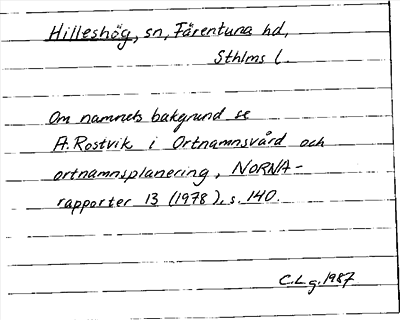 Hilleshög, sn, Färentuna hd,
Sthlms l.
Om namnets bakgrund se
A. Rostvik i Ortnamnsvård och
ortnamnsplanering, NORNA-
rapporter 13 (1978), s. 140.
C.L g. 1987